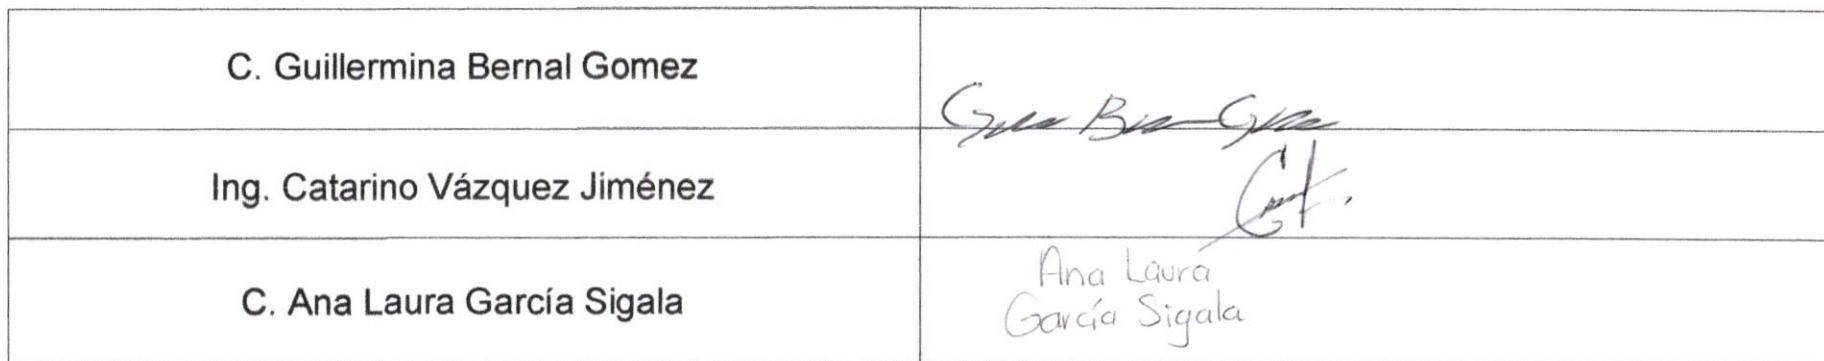 C. Guillermina Bernal Gomez
Ing. Catarino Vázquez Jiménez
C. Ana Laura García Sigala
Ana Laura
García Sigala